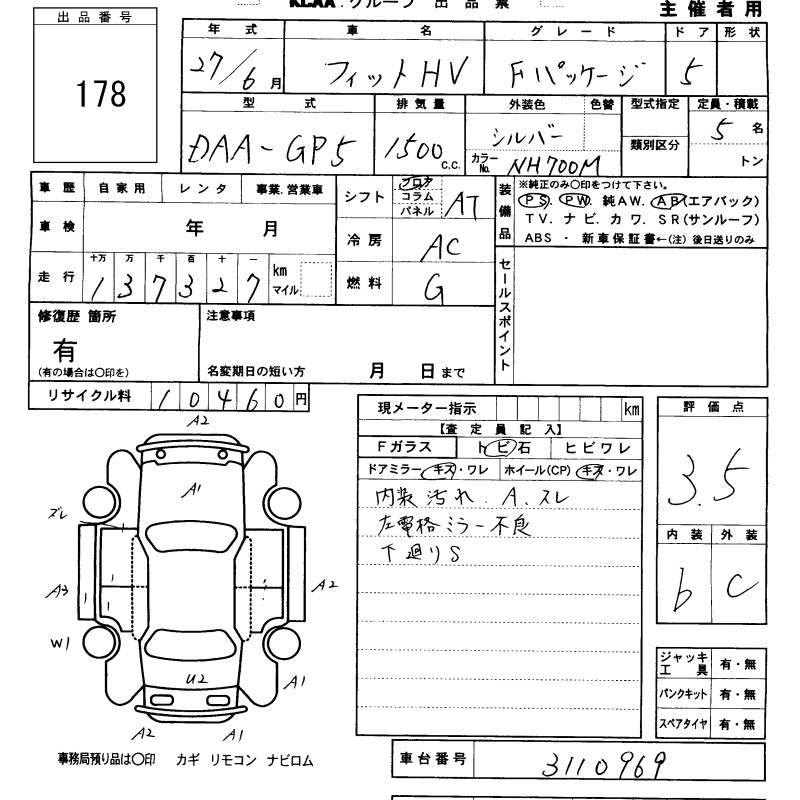 KCAA.グループ 出品票
主催者用
出品番号
178
年式 車名 グレード ドア 形状
27/6月 フィットHV Fパッケージ 5
型式 排気量 外装色 色替 型式指定 定員・積載
DAA-GP5 1500 c.c. シルバー 類別区分 5名
カラーNo. NH700M トン
車歴 自家用 レンタ 事業.営業車
車検 年 月
走行 十万 万 千 百 十 一
137327 km マイル
シフト フロア コラム パネル AT
冷房 AC
燃料 G
装備品
※純正のみ○印をつけて下さい。
PS. PW. 純AW. AB(エアバック)
TV. ナビ. カワ. SR(サンルーフ)
ABS ・ 新車保証書←(注) 後日送りのみ
セールスポイント
修復歴 箇所
有
(有の場合は○印を)
注意事項
名変期日の短い方 月 日まで
リサイクル料 10460円
現メーター指示 km
【査定員記入】
Fガラス トビ石 ヒビワレ
ドアミラー キズ・ワレ ホイール(CP) キズ・ワレ
内装汚れ.A.スレ
左電格ミラー不良
下廻りS
評価点
3.5
内装 外装
b C
A2
A1
ズレ
A3
A2
W1
U2
A1
A2 A1
ジャッキ工具 有・無
パンクキット 有・無
スペアタイヤ 有・無
事務局預り品は○印 カギ リモコン ナビロム
車台番号 3110969